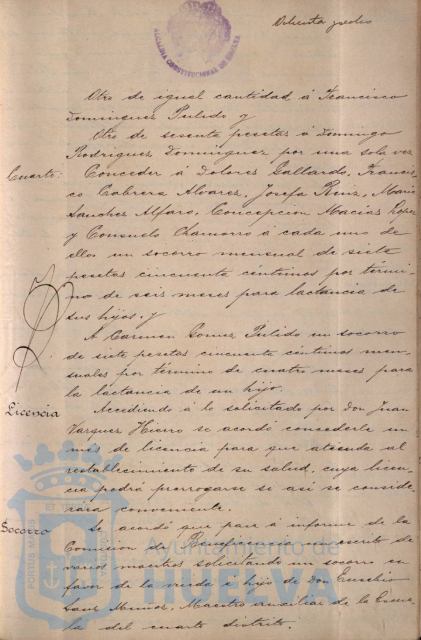 Ochenta y ocho
ALCALDIA CONSTITUCIONAL DE HUELVA
Otro de igual cantidad á Francisco
Dominguez Pulido y
Otro de sesenta pesetas á Domingo
Rodriguez Dominguez por una sola vez
Cuarto: Conceder á Dolores Gallardo, Francis-
co Cabrera Alvarez, Josefa Ruiz, Maria
Sanchez Alfaro, Concepcion Macias Lopez
y Consuelo Chamorro á cada uno de
ellos un socorro mensual de siete
pesetas cincuenta céntimos por térmi-
no de seis meses para lactancia de
sus hijos, y
A Carmen Gomez Pulido un socorro
de siete pesetas cincuenta céntimos men-
suales por término de cuatro meses para
la lactancia de un hijo.
Licencia Accediendo á lo solicitado por Don Juan
Vazquez Hierro se acordó concederle un
mes de licencia para que atienda al
restablecimiento de su salud, cuya licen-
cia podrá prorrogarse si así se conside-
rara conveniente.
Socorro Se acordó que pase á informe de la
Comision de Beneficencia un escrito de
varios maestros solicitando un socorro en
favor de la viuda é hijo de Don Eusebio
Muñoz, Maestro auxiliar de la Escue-
la del cuarto distrito.
PORTUS MARIS
Ayuntamiento de
HUELVA